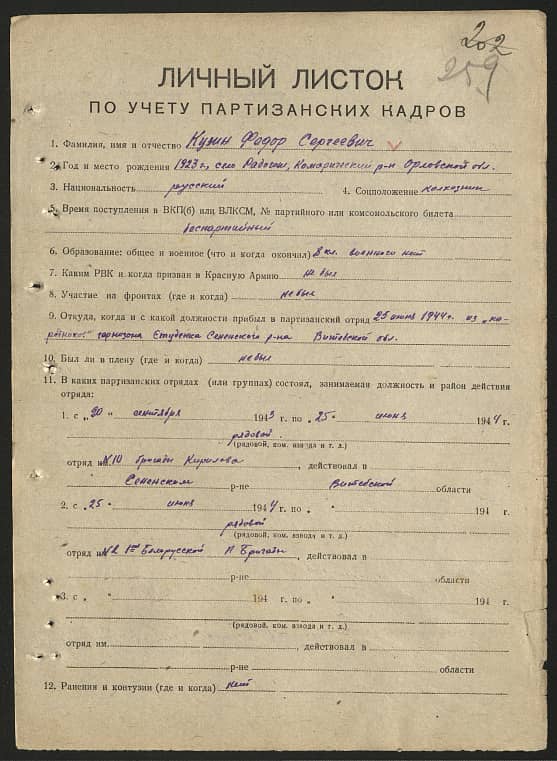 202
259
ЛИЧНЫЙ ЛИСТОК
ПО УЧЕТУ ПАРТИЗАНСКИХ КАДРОВ
1. Фамилия, имя и отчество Кузин Федор Сергеевич
2. Год и место рождения 1923 г, село Радогощ, Комаричский р-н Орловской обл.
3. Национальность русский 4. Соцположение колхозник
5. Время поступления в ВКП(б) или ВЛКСМ, № партийного или комсомольского билета
беспартийный
6. Образование: общее и военное (что и когда окончал) 8 кл. военного нет
7. Каким РВК и когда призван в Красную Армию не был
8. Участие на фронтах (где и когда) не был
9. Откуда, когда и с какой должности прибыл в партизанский отряд 25 июня 1944 г. из „на-
родного" гарнизона Студенка Сененского р-на Витебской обл.
10. Был ли в плену (где и когда) не был
11. В каких партизанских отрядах (или группах) состоял, занимаемая должность и район действия
отряда:
1. с „20 " сентября 1943 г. по „25 " июня 1944 г.
рядовой
(рядовой, ком. взвода и т. д.)
отряд им. №10 бригады Кирилова, действовал в
Сененском р-не Витебской области
2. с „25 " июня 1944 г. по „ " 194 г.
рядовой
(рядовой, ком. взвода и т. д.)
отряд им. №2 1ой Белорусской П Бригады, действовал в
р-не области
3. с „ " 194 г. по „ " 194 г.
(рядовой, ком. взвода и т. д.)
отряд им. , действовал в
р-не области
12. Ранения и контузии (где и когда) нет